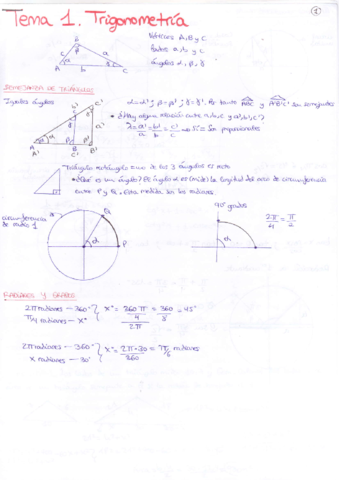 Tema 1. Trigonometría
1
Vértices A, B y C
Lados a, b y c
Ángulos α, β, γ
A a B b C
SEMEJANZA DE TRIÁNGULOS
Iguales ángulos
α=α'; β=β'; γ=γ'. Por tanto ABC y A'B'C' son semejantes
¿Hay alguna relación entre a, b, c y a', b', c'?
a'/a = b'/b = c'/c → Sí = Son proporcionales
Triángulo rectángulo = uno de los 3 ángulos es recto
¿Qué es un ángulo? El ángulo α es (mide) la longitud del arco de circunferencia
entre P y Q. Esta medida son los radianes
circunferencia
de radio 1
Q
α
P
90 grados
α
2π/4 = π/2
RADIANES Y GRADOS
2π radianes — 360°
π/4 radianes — x°
x° = (360 π/4)/2π = 360/8 = 45°
2π radianes — 360°
x radianes — 30°
x° = 2π·30/360 = π/6 radianes